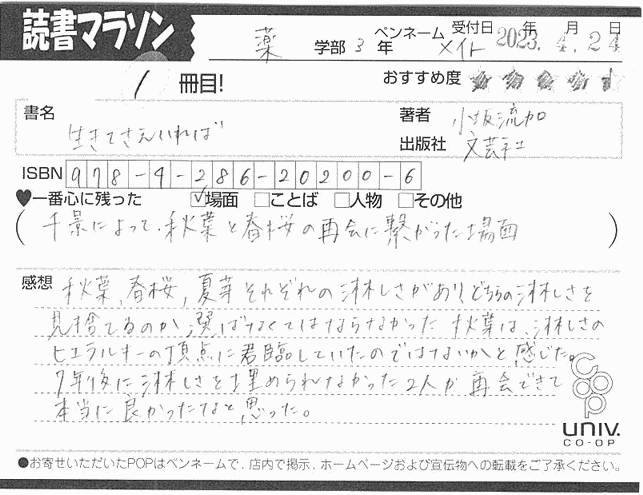 読書マラソン
薬 学部 3 年 ペンネーム メイト 受付日 2023年 4月 24日
1 冊目!
おすすめ度
書名 生きてさえいれば
著者 小坂流加
出版社 文芸社
ISBN 978-4-286-20200-6
♥一番心に残った ☑場面 □ことば □人物 □その他
(千景によって、秋葉と春桜の再会に繋がった場面)
感想 秋葉、春桜、夏芽それぞれの淋しさがありどちらの淋しさを
見捨てるのか、選ばなくてはならなかった秋葉は、淋しさの
ヒエラルキーの頂点に君臨していたのではないかと感じた。
7年後に淋しさを埋められなかった2人が再会できて
本当に良かったなと思った。
coop
UNIV.
CO-OP
●お寄せいただいたPOPはペンネームで、店内で掲示、ホームページおよび宣伝物への転載をご了承ください。